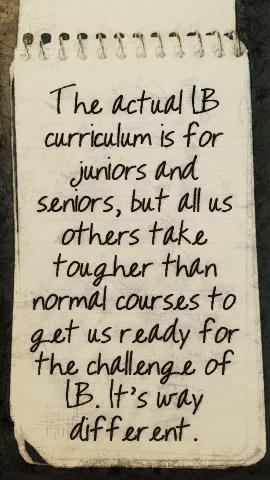 The actual IB
curriculum is for
juniors and
seniors, but all us
others take
tougher than
normal courses to
get us ready for
the challenge of
IB. It's way
different.